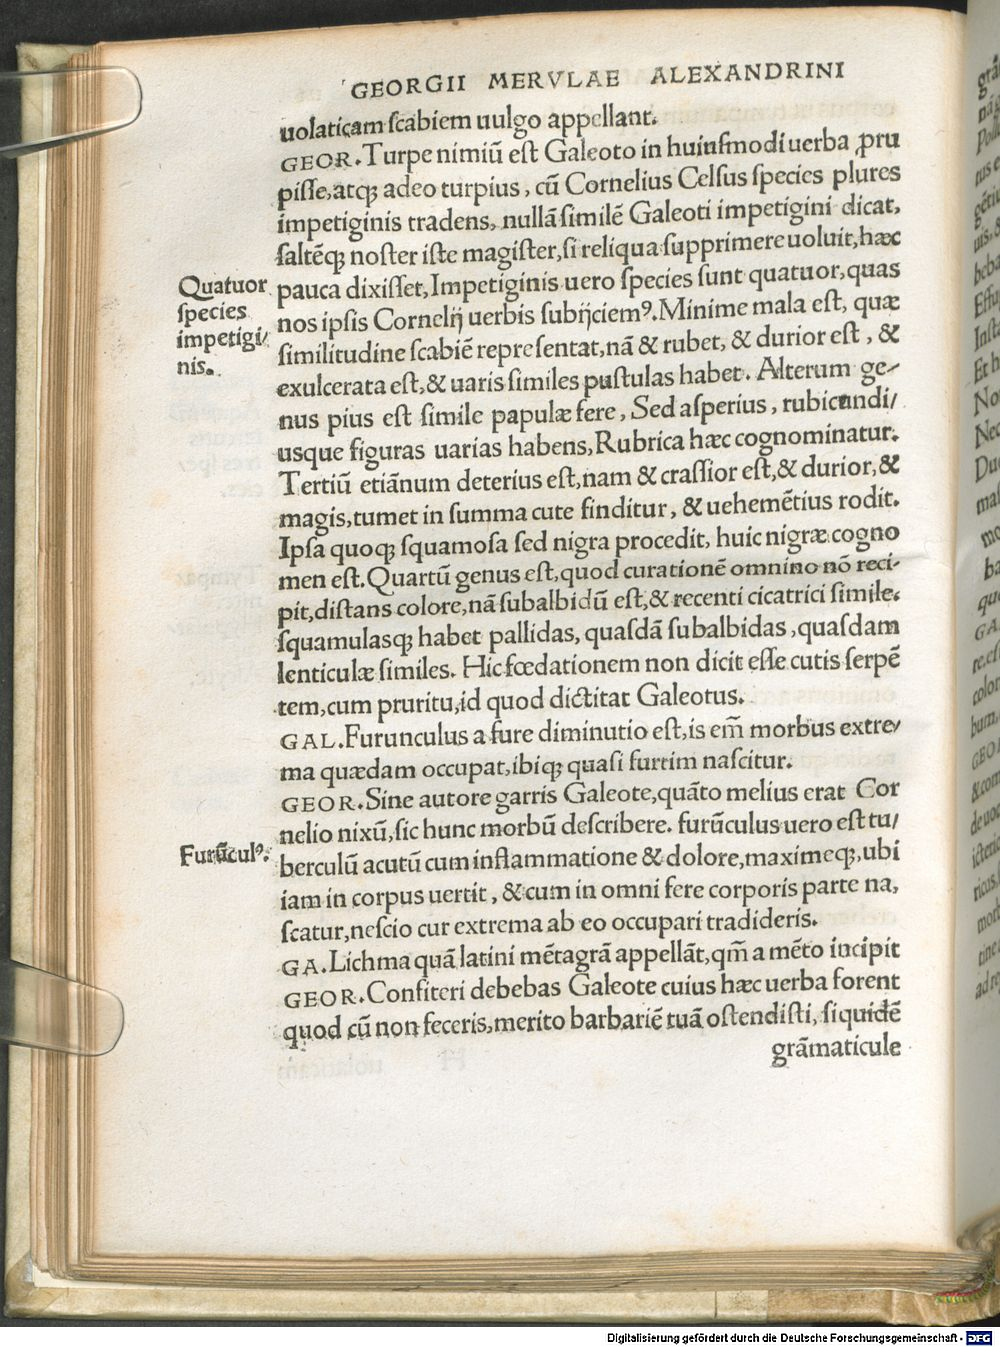 GEORGII MERVLAE ALEXANDRINI
uolaticam ſcabiem uulgo appellant.
GEOR. Turpe nimiũ eſt Galeoto in huiuſmodi uerba ꝓru
piſſe, atqꝫ adeo turpius, cũ Cornelius Celſus ſpecies plures
impetiginis tradens, nullã ſimilẽ Galeoti impetigini dicat,
ſaltẽqꝫ noſter iſte magiſter, ſi reliqua ſupprimere uoluit, hæc
pauca dixiſſet, Impetiginis uero ſpecies ſunt quatuor, quas
nos ipſis Cornelij uerbis ſubijciemꝰ. Minime mala eſt, quæ
ſimilitudine ſcabiẽ repreſentat, nã & rubet, & durior eſt, &
exulcerata eſt, & uaris ſimiles puſtulas habet. Alterum ge-
nus pius eſt ſimile papulæ fere, Sed aſperius, rubicundi/
usque figuras uarias habens, Rubrica hæc cognominatur.
Tertiũ etiãnum deterius eſt, nam & craſſior eſt, & durior, &
magis, tumet in ſumma cute finditur, & uehemẽtius rodit.
Ipſa quoqꝫ ſquamoſa ſed nigra procedit, huic nigræ cogno
men eſt. Quartũ genus eſt, quod curationẽ omnino nõ reci-
pit, diſtans colore, nã ſubalbidũ eſt, & recenti cicatrici ſimile.
ſquamulasqꝫ habet pallidas, quaſdã ſubalbidas, quaſdam
lenticulæ ſimiles. Hic fœdationem non dicit eſſe cutis ſerpẽ
tem, cum pruritu, id quod dictitat Galeotus.
GAL. Furunculus a fure diminutio eſt, is em̃ morbus extre/
ma quædam occupat, ibiqꝫ quaſi furtim naſcitur.
GEOR. Sine autore garris Galeote, quãto melius erat Cor
nelio nixũ, ſic hunc morbũ deſcribere. furũculus uero eſt tu/
berculũ acutũ cum inflammatione & dolore, maximeqꝫ, ubi
iam in corpus uertit, & cum in omni fere corporis parte na,
ſcatur, neſcio cur extrema ab eo occupari tradideris.
GA. Lichma quã latini mẽtagrã appellãt, qm̃ a mẽto incipit
GEOR. Confiteri debebas Galeote cuius hæc uerba forent
quod cũ non feceris, merito barbariẽ tuã oſtendiſti, ſiquidẽ
grãmaticule
Quatuor
ſpecies
impetigi/
nis.
Furũculꝰ.
Digitalisierung gefördert durch die Deutsche Forschungsgemeinschaft - DFG